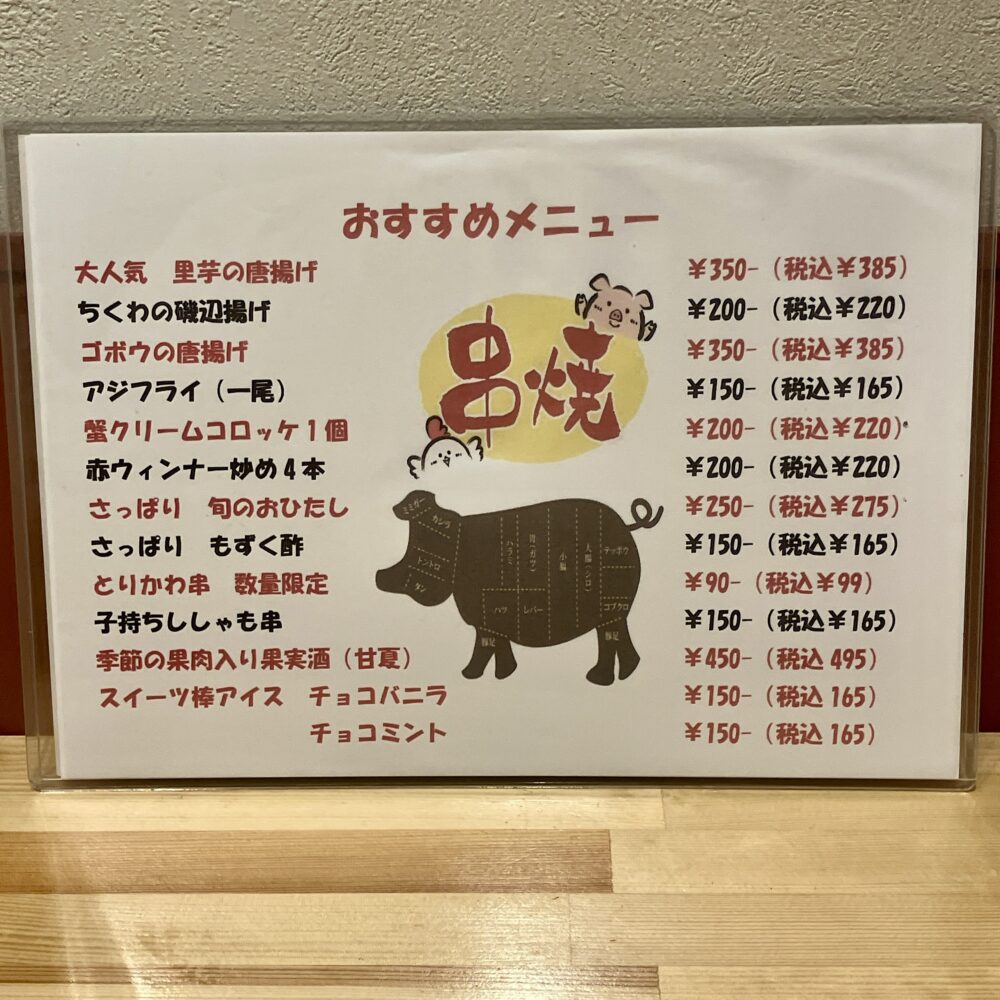 おすすめメニュー
大人気 里芋の唐揚げ ¥350-(税込¥385)
ちくわの磯辺揚げ ¥200-(税込¥220)
ゴボウの唐揚げ ¥350-(税込¥385)
アジフライ(一尾) ¥150-(税込¥165)
蟹クリームコロッケ1個 ¥200-(税込¥220)
赤ウィンナー炒め4本 ¥200-(税込¥220)
さっぱり 旬のおひたし ¥250-(税込¥275)
さっぱり もずく酢 ¥150-(税込¥165)
とりかわ串 数量限定 ¥90-(税込¥99)
子持ちししゃも串 ¥150-(税込¥165)
季節の果肉入り果実酒(甘夏) ¥450-(税込495)
スイーツ棒アイス チョコバニラ ¥150-(税込165)
チョコミント ¥150-(税込165)
串焼
ミミガー
カシラ
トントロ
タン
ハラミ
胃(ガツ)
小腸
大腸(シロ)
テッポウ
ハツ
レバー
コブクロ
豚足
豚足